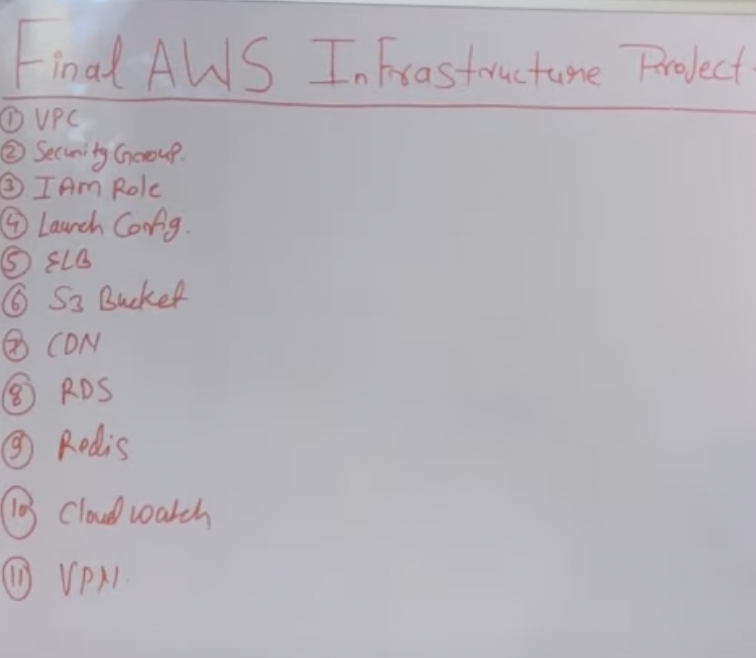 Final AWS InFrastructure Project
① VPC
② Security Group.
③ IAM Role
④ Launch Config.
⑤ ELB
⑥ S3 Bucket
⑦ CDN
⑧ RDS
⑨ Redis
⑩ Cloud watch
⑪ VPN.